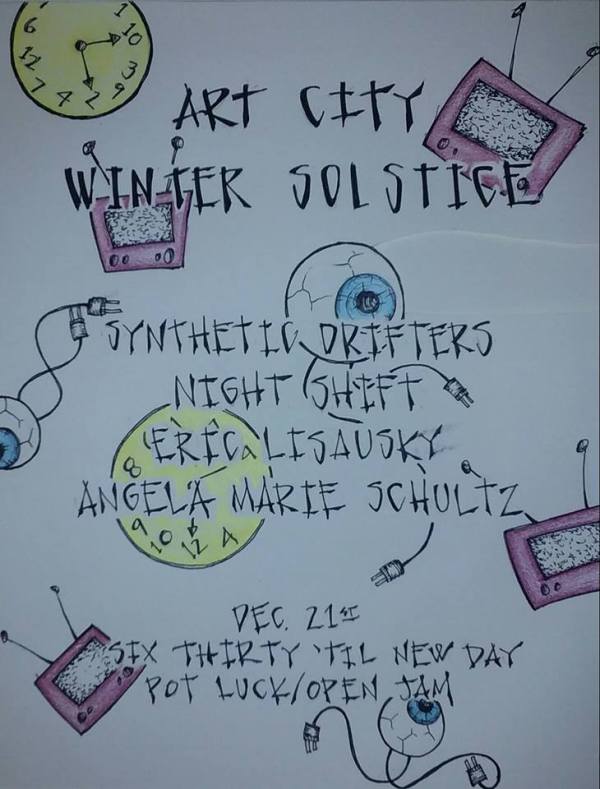 1
6
10
12
3
7
9
4
2
ART CITY
WINTER SOLSTICE
SYNTHETIC DRIFTERS
NIGHT SHIFT
ERIC LISAUSKY
8
ANGELA MARIE SCHULTZ
9
10
12
4
DEC. 21ST
SIX THIRTY 'TIL NEW DAY
POT LUCK/OPEN JAM